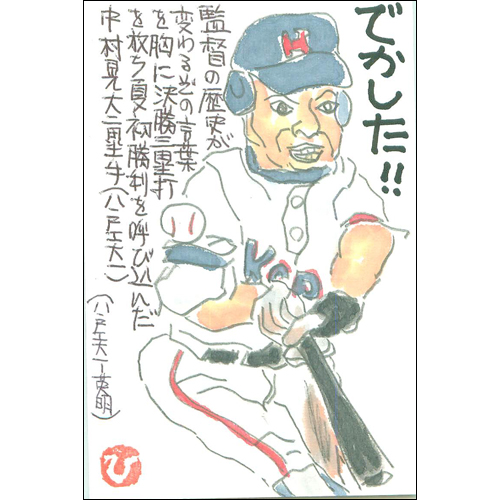 でかした!!
H
監督の歴史が
変わるぞの言葉
を胸に決勝三塁打
を放ち夏初勝利を呼び込んだ
中村晃大二塁手(八戸工大一)
(八戸工大一英明)
KOD
ひ